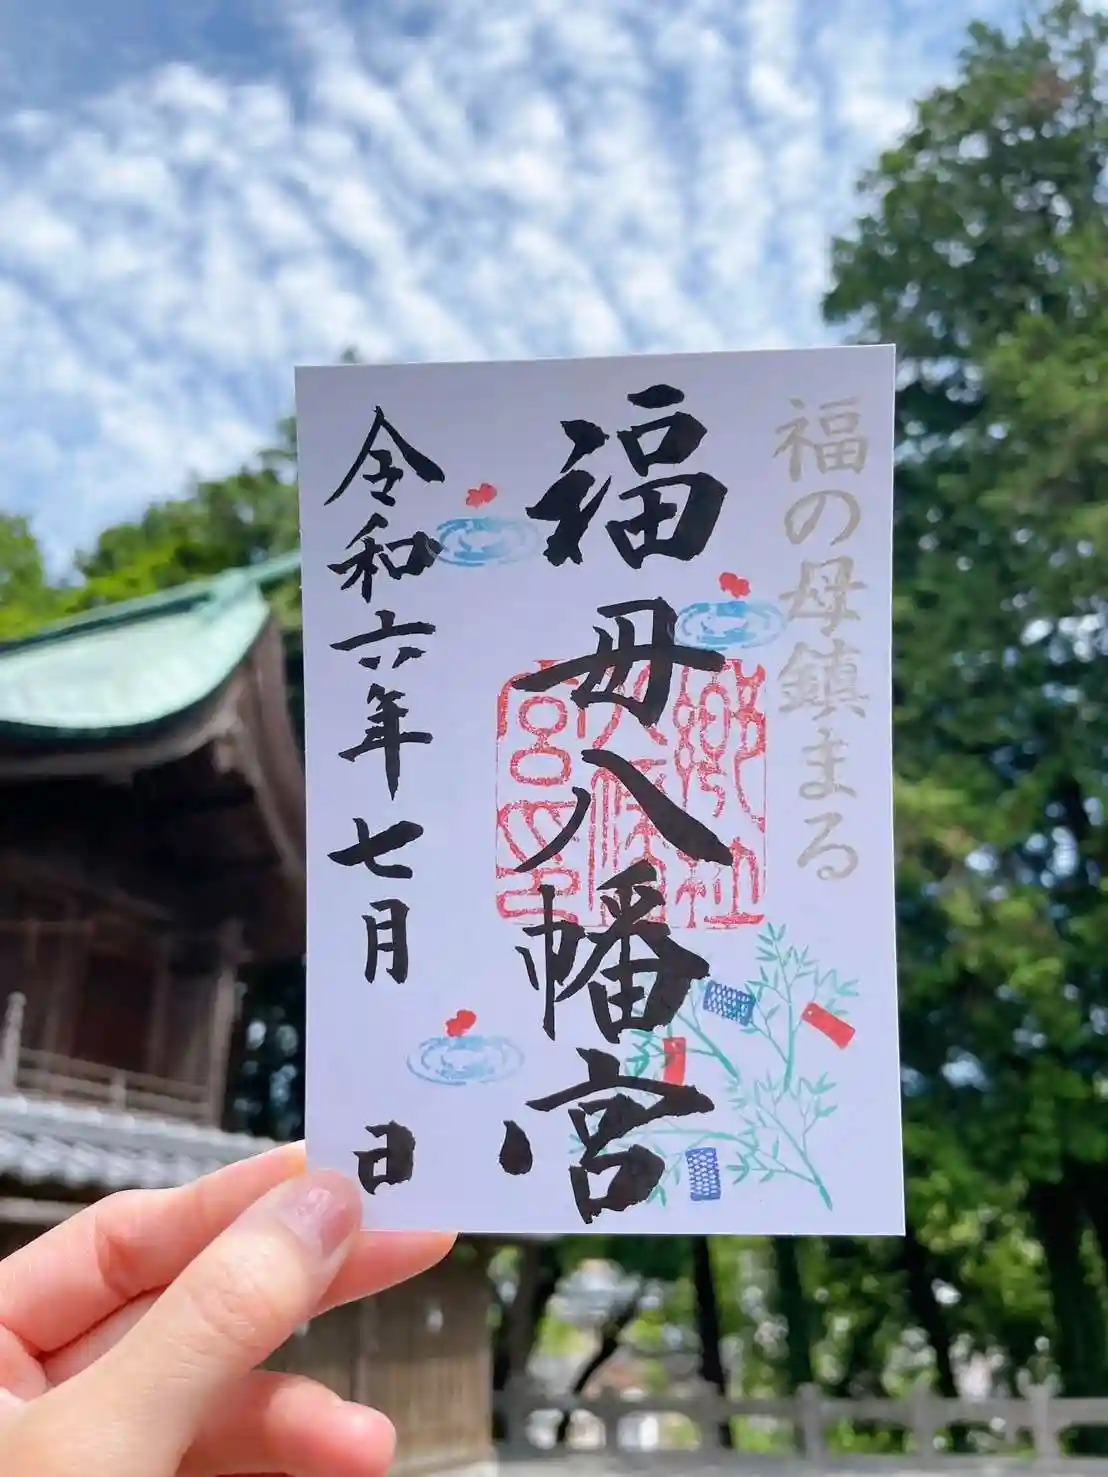 福の母鎮まる
福母八幡宮
令和六年七月 日